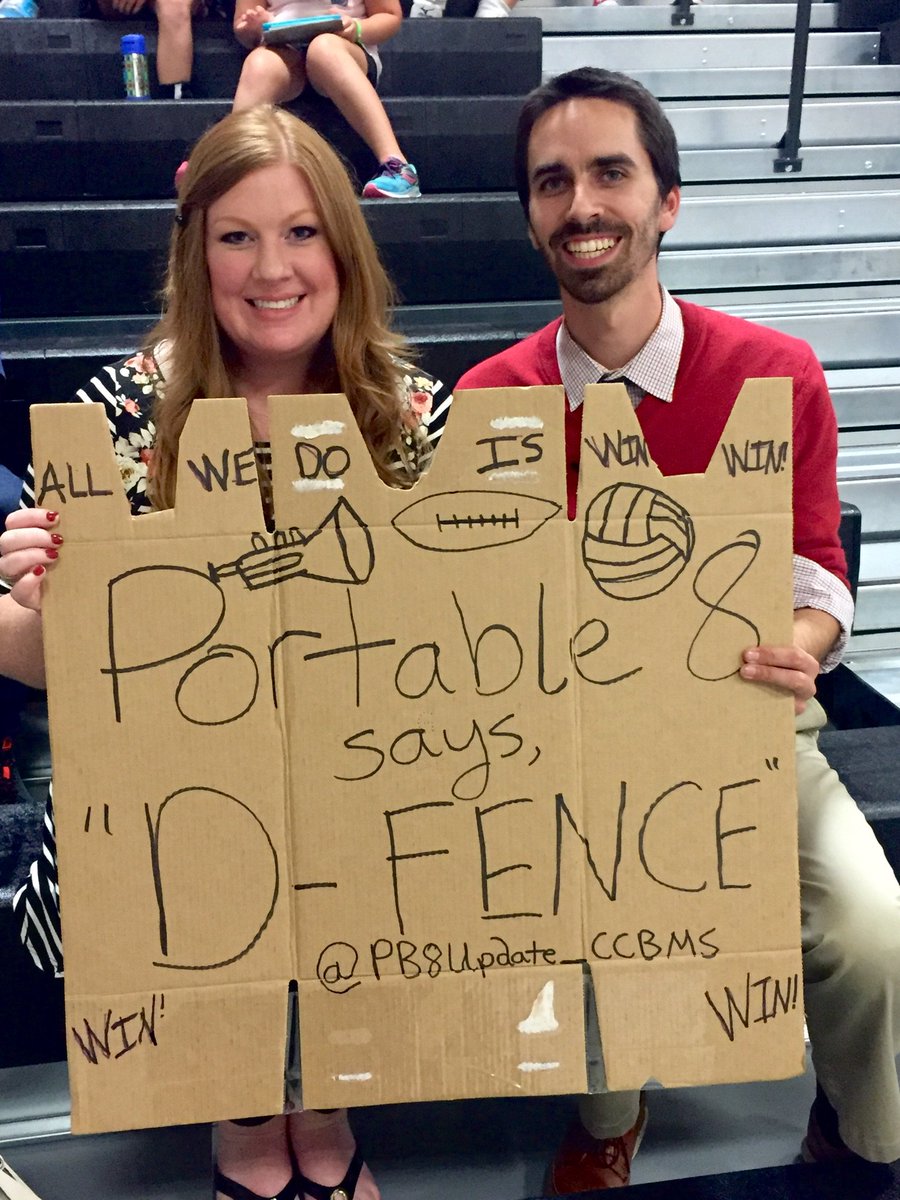 ALL WE DO IS WIN WIN!
Portable 8
says,
"D-FENCE"
@PB8Update_CCBMS
WIN! WIN!